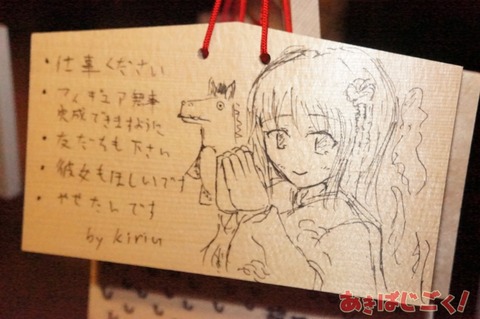 ・仕事ください
・フィギュア無事
完成できますように
・友だちも下さい
・彼女もほしいです
・やせたいです
by kiriu
あきばじごく!